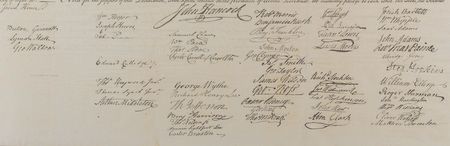 John Hancock
Button Gwinnett
Lyman Hall
Geo Walton
Wm Hooper
Joseph Hewes
John Penn
Edward Rutledge
Thos Heyward Junr
Thomas Lynch Junr
Arthur Middleton
Samuel Chase
Wm Paca
Thos Stone
Charles Carroll of Carrollton
George Wythe
Richard Henry Lee
Th Jefferson
Benja Harrison
Thos Nelson jr
Francis Lightfoot Lee
Carter Braxton
Robt Morris
Benjamin Rush
Benja Franklin
John Morton
Geo Clymer
Jas Smith
Geo Taylor
James Wilson
Geo Ross
Caesar Rodney
Geo Read
Tho M:Kean
Wm Floyd
Phil Livingston
Frans Lewis
Lewis Morris
Richd Stockton
Jno Witherspoon
Fras Hopkinson
John Hart
Abra Clark
Josiah Bartlett
Wm Whipple
Saml Adams
John Adams
Robt Treat Paine
Elbridge Gerry
Step Hopkins
William Ellery
Roger Sherman
Saml Huntington
Wm Williams
Oliver Wolcott
Matthew Thornton